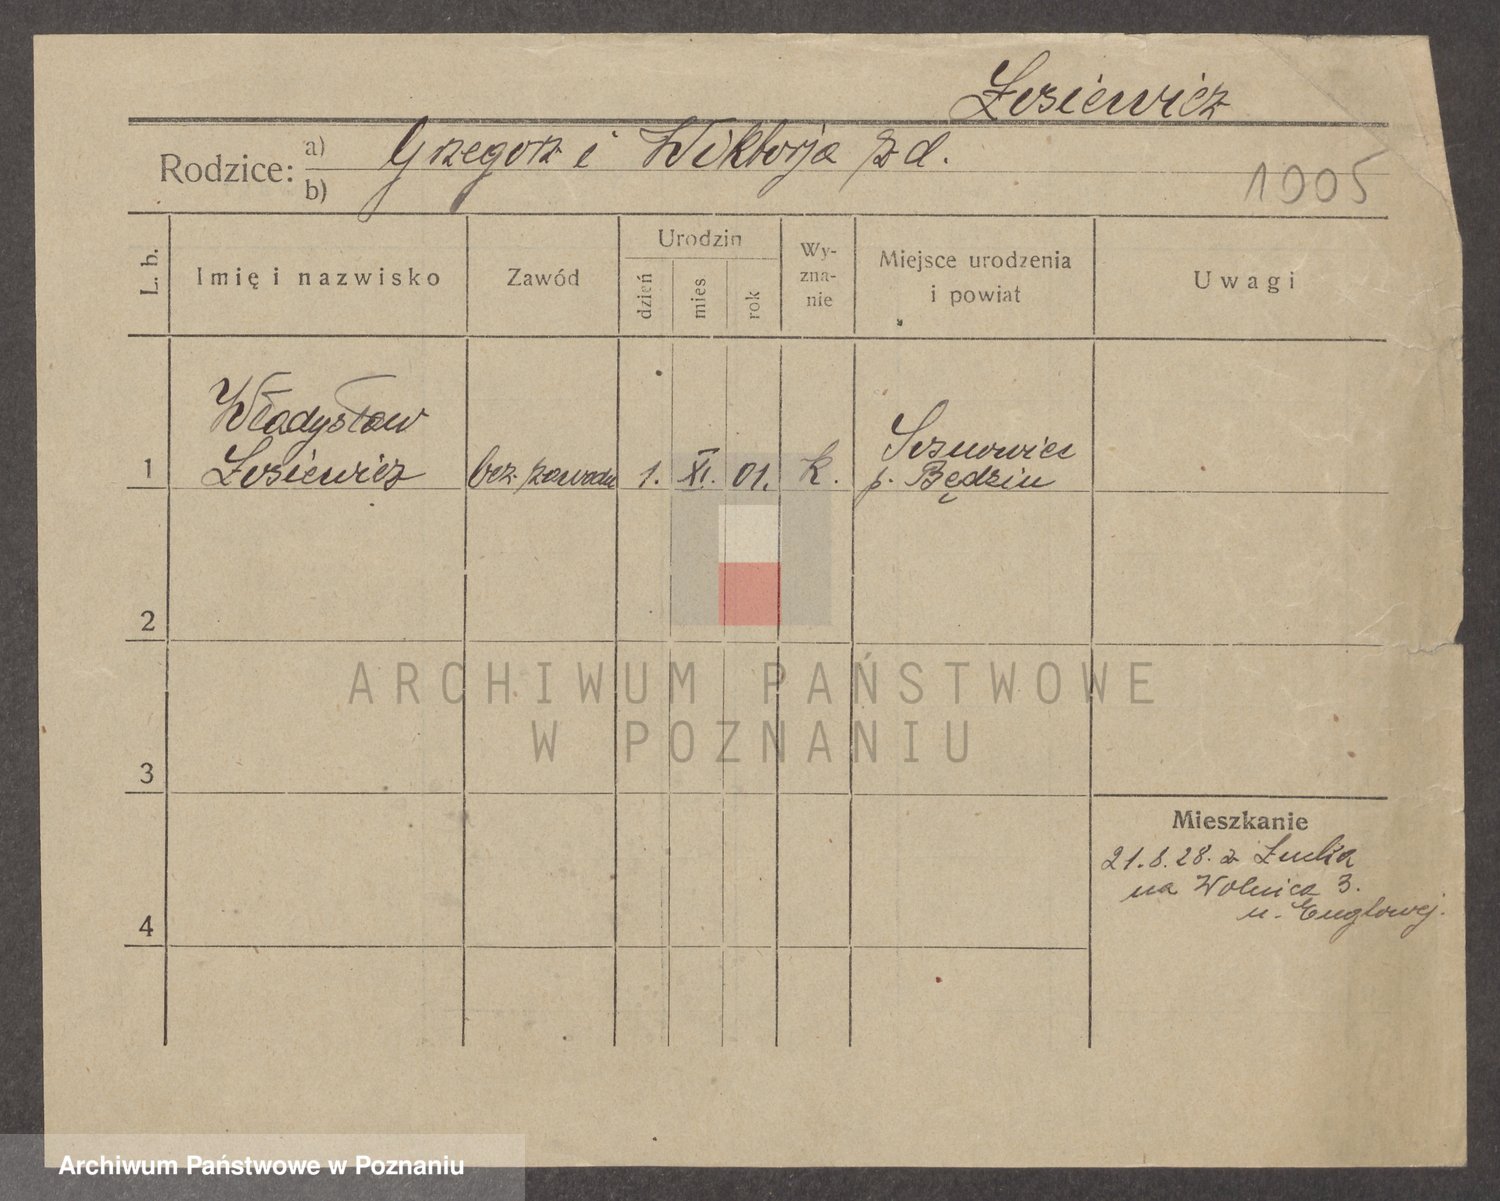 Łosiewicz
Rodzice: a) Grzegorz i Wiktorja z d.
b)
1005
L. b.
Imię i nazwisko
Zawód
Urodzin
dzień
mies
rok
Wy-
zna-
nie
Miejsce urodzenia
i powiat
Uwagi
Władysław
1 Łosiewicz bez zawodu 1. XI. 01. k.
Sosnowiec
p. Będzin
2
3
4
ARCHIWUM PAŃSTWOWE
W POZNANIU
Mieszkanie
21.8.28. z
na Wolnica 3.
u.
Archiwum Państwowe w Poznaniu